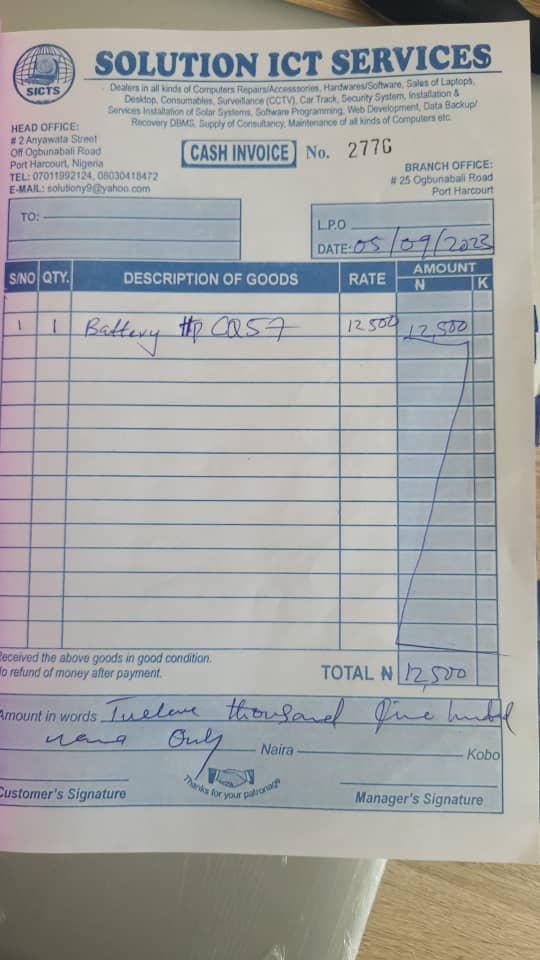 SICTS
SOLUTION ICT SERVICES
Dealers in all kinds of Computers Repairs/Accesssories, Hardwares/Software, Sales of Laptops,
Desktop, Consumables, Surveillance (CCTV), Car Track, Security System, Installation &
Services Installation of Solar Systems, Software Programming, Web Development, Data Backup/
Recovery DBMS, Supply of Consultancy, Maintenance of all kinds of Computers etc.
HEAD OFFICE:
# 2 Anyawata Street
Off Ogbunabali Road
Port Harcourt, Nigeria
TEL: 07011992124, 08030418472
E-MAIL: solutiony9@yahoo.com
CASH INVOICE No. 2776
BRANCH OFFICE:
# 25 Ogbunabali Road
Port Harcourt
TO:
L.P.O
DATE: 05/09/2023
S/NO QTY. DESCRIPTION OF GOODS RATE AMOUNT
N K
1 1 Battery Hp CQ57 12500 12,500
Received the above goods in good condition.
No refund of money after payment.
TOTAL N 12,500
Amount in words Twelve thousand five hundred
naira Only Naira Kobo
Thanks for your patronage
Customer's Signature
Manager's Signature